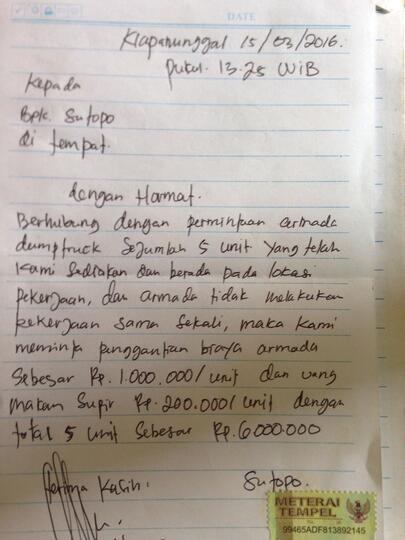 DATE
Klapanunggal 15/03/2016.
pukul. 13.25 WIB
Kepada
Bpk. Sutopo
di tempat.
dengan Hormat.
Berhubung dengan permintaan armada
dumptruck Sejumlah 5 unit yang telah
Kami Sediakan dan berada pada lokasi
pekerjaan, dan armada tidak melakukan
pekerjaan sama Sekali, maka Kami
meminta penggantian biaya armada
Sebesar Rp. 1.000.000/unit dan uang
makan Supir Rp. 200.000/unit dengan
total 5 unit Sebesar Rp. 6.000.000
Terima Kasih.
Sutopo.
METERAI
TEMPEL
99465ADF813892145